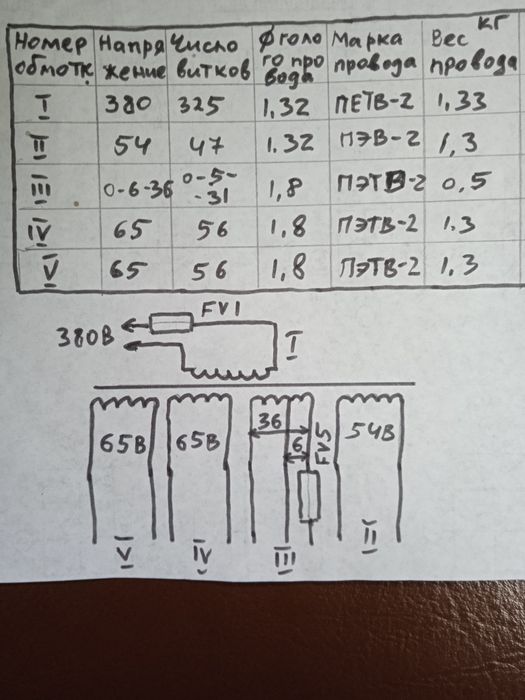 Номер обмотк | Напряжение | Число витков | Ф голого провода | Марка провода | Вес провода кг
I | 380 | 325 | 1,32 | ПЕТВ-2 | 1,33
II | 54 | 47 | 1.32 | ПЭВ-2 | 1,3
III | 0-6-36 | 0-5--31 | 1,8 | ПЭТВ-2 | 0,5
IV | 65 | 56 | 1,8 | ПЭТВ-2 | 1.3
V | 65 | 56 | 1,8 | ПЭТВ-2 | 1.3
FV1
380В
I
65В 65В 36 6 FV5 54В
V IV III II